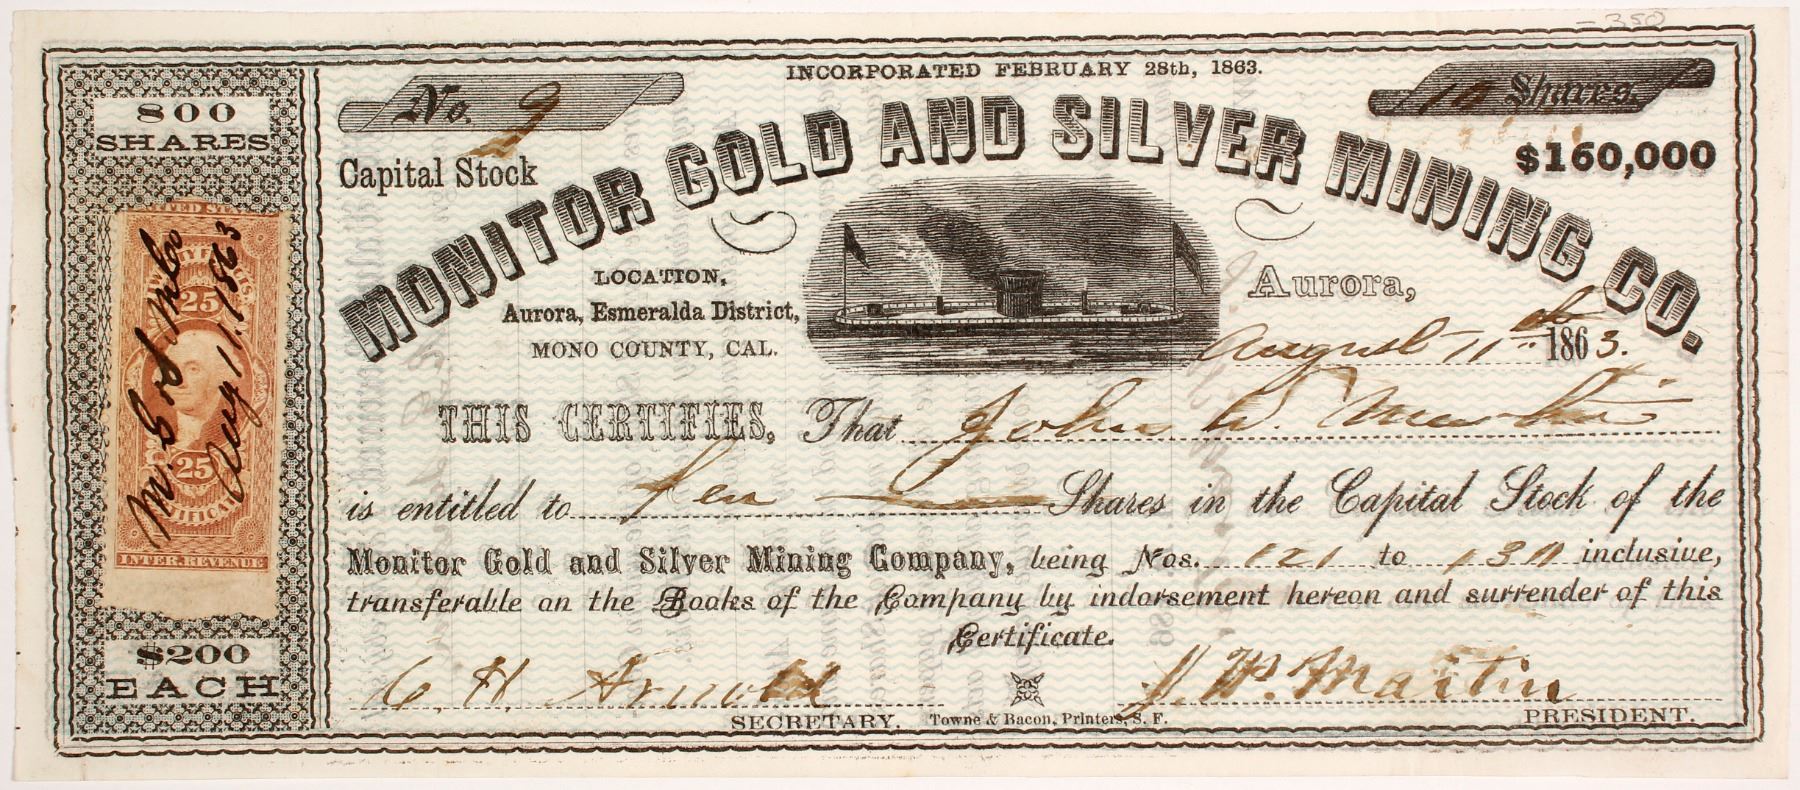 350
INCORPORATED FEBRUARY 28th, 1863.
No. 9
10 Shares.
800
SHARES
Capital Stock
$160,000
MONITOR GOLD AND SILVER MINING CO.
LOCATION,
Aurora, Esmeralda District,
MONO COUNTY, CAL.
Aurora,
August 11th 1863.
UNITED STATES
25
25
M. G & S M Co
Aug 11. 1863
CERTIFICATE
INTER. REVENUE
THIS CERTIFIES, That John W.
is entitled to Ten Shares in the Capital Stock of the
Monitor Gold and Silver Mining Company, being Nos. 121 to 130 inclusive,
transferable on the Books of the Company by indorsement hereon and surrender of this
Certificate.
$200
EACH
C. H. Arnold
SECRETARY.
Towne & Bacon, Printers, S. F.
J. W. Martin
PRESIDENT.